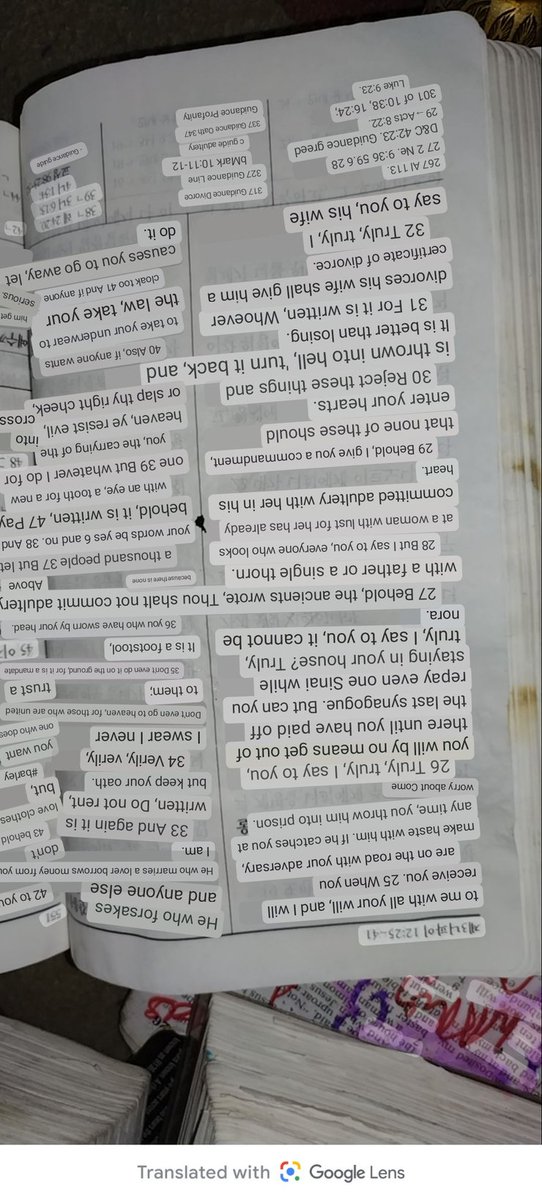 제3니파이 12:25-41
to me with all your will, and I will
receive you. 25 When you
are on the road with your adversary,
make haste with him. If he catches you at
any time, you throw him into prison.
worry about Come
26 Truly, truly, I say to you,
you will by no means get out of
there until you have paid off
the last synagogue. But can you
repay even one Sinai while
staying in your house? Truly,
truly, I say to you, it cannot be
nora.
27 Behold, the ancients wrote, Thou shalt not commit adultery
with a father or a single thorn.
28 But I say to you, everyone who looks
at a woman with lust for her has already
committed adultery with her in his
heart.
29 Behold, I give you a commandment,
that none of these should
enter your hearts.
30 Reject these things and
is thrown into hell, 'turn it back, and
It is better than losing.
31 For it is written, Whoever
divorces his wife shall give him a
certificate of divorce.
32 Truly, truly, I
say to you, his wife
He who forsakes
and anyone else
He who marries a lover borrows money from you
I am.
33 And again it is
written, Do not rent,
but keep your oath.
34 Verily, verily,
I swear I never
Don't even go to heaven, for those who are united
to them;
35 Don't even do it on the ground, for it is a mandate
It is a footstool,
36 you who have sworn by your head.
because there is none
a thousand people 37 But let
your words be yes 6 and no. 38 And
behold, it is written,
with an eye, a tooth for a new
one 39 But whatever I do for
you, the carrying of the
heaven, ye resist evil,
or slap thy right cheek,
40 Also, if anyone wants
to take your underwear to
the law, take your
cloak too 41 And if anyone
causes you to go away, let
do it.
551
42 to you
don't
43 behold
love clothes
but,
#barley
you want
one who does
trust a
45
Above
47 Pay
48
into
cross
him get
serious.
267 Al 113.
27 2 Ne. 9:36 59:6 28
D&C 23:42-23. Guidance greed
29 --Acts 8:22.
301 of 10:38, 16:24,
Luke 9:23.
317 Guidance Divorce
327 Guidance Line
bMark 10:11-12
c guide adultery
337 Guidance Oath 347
Guidance Profanity
- Guidance guide
Translated with Google Lens